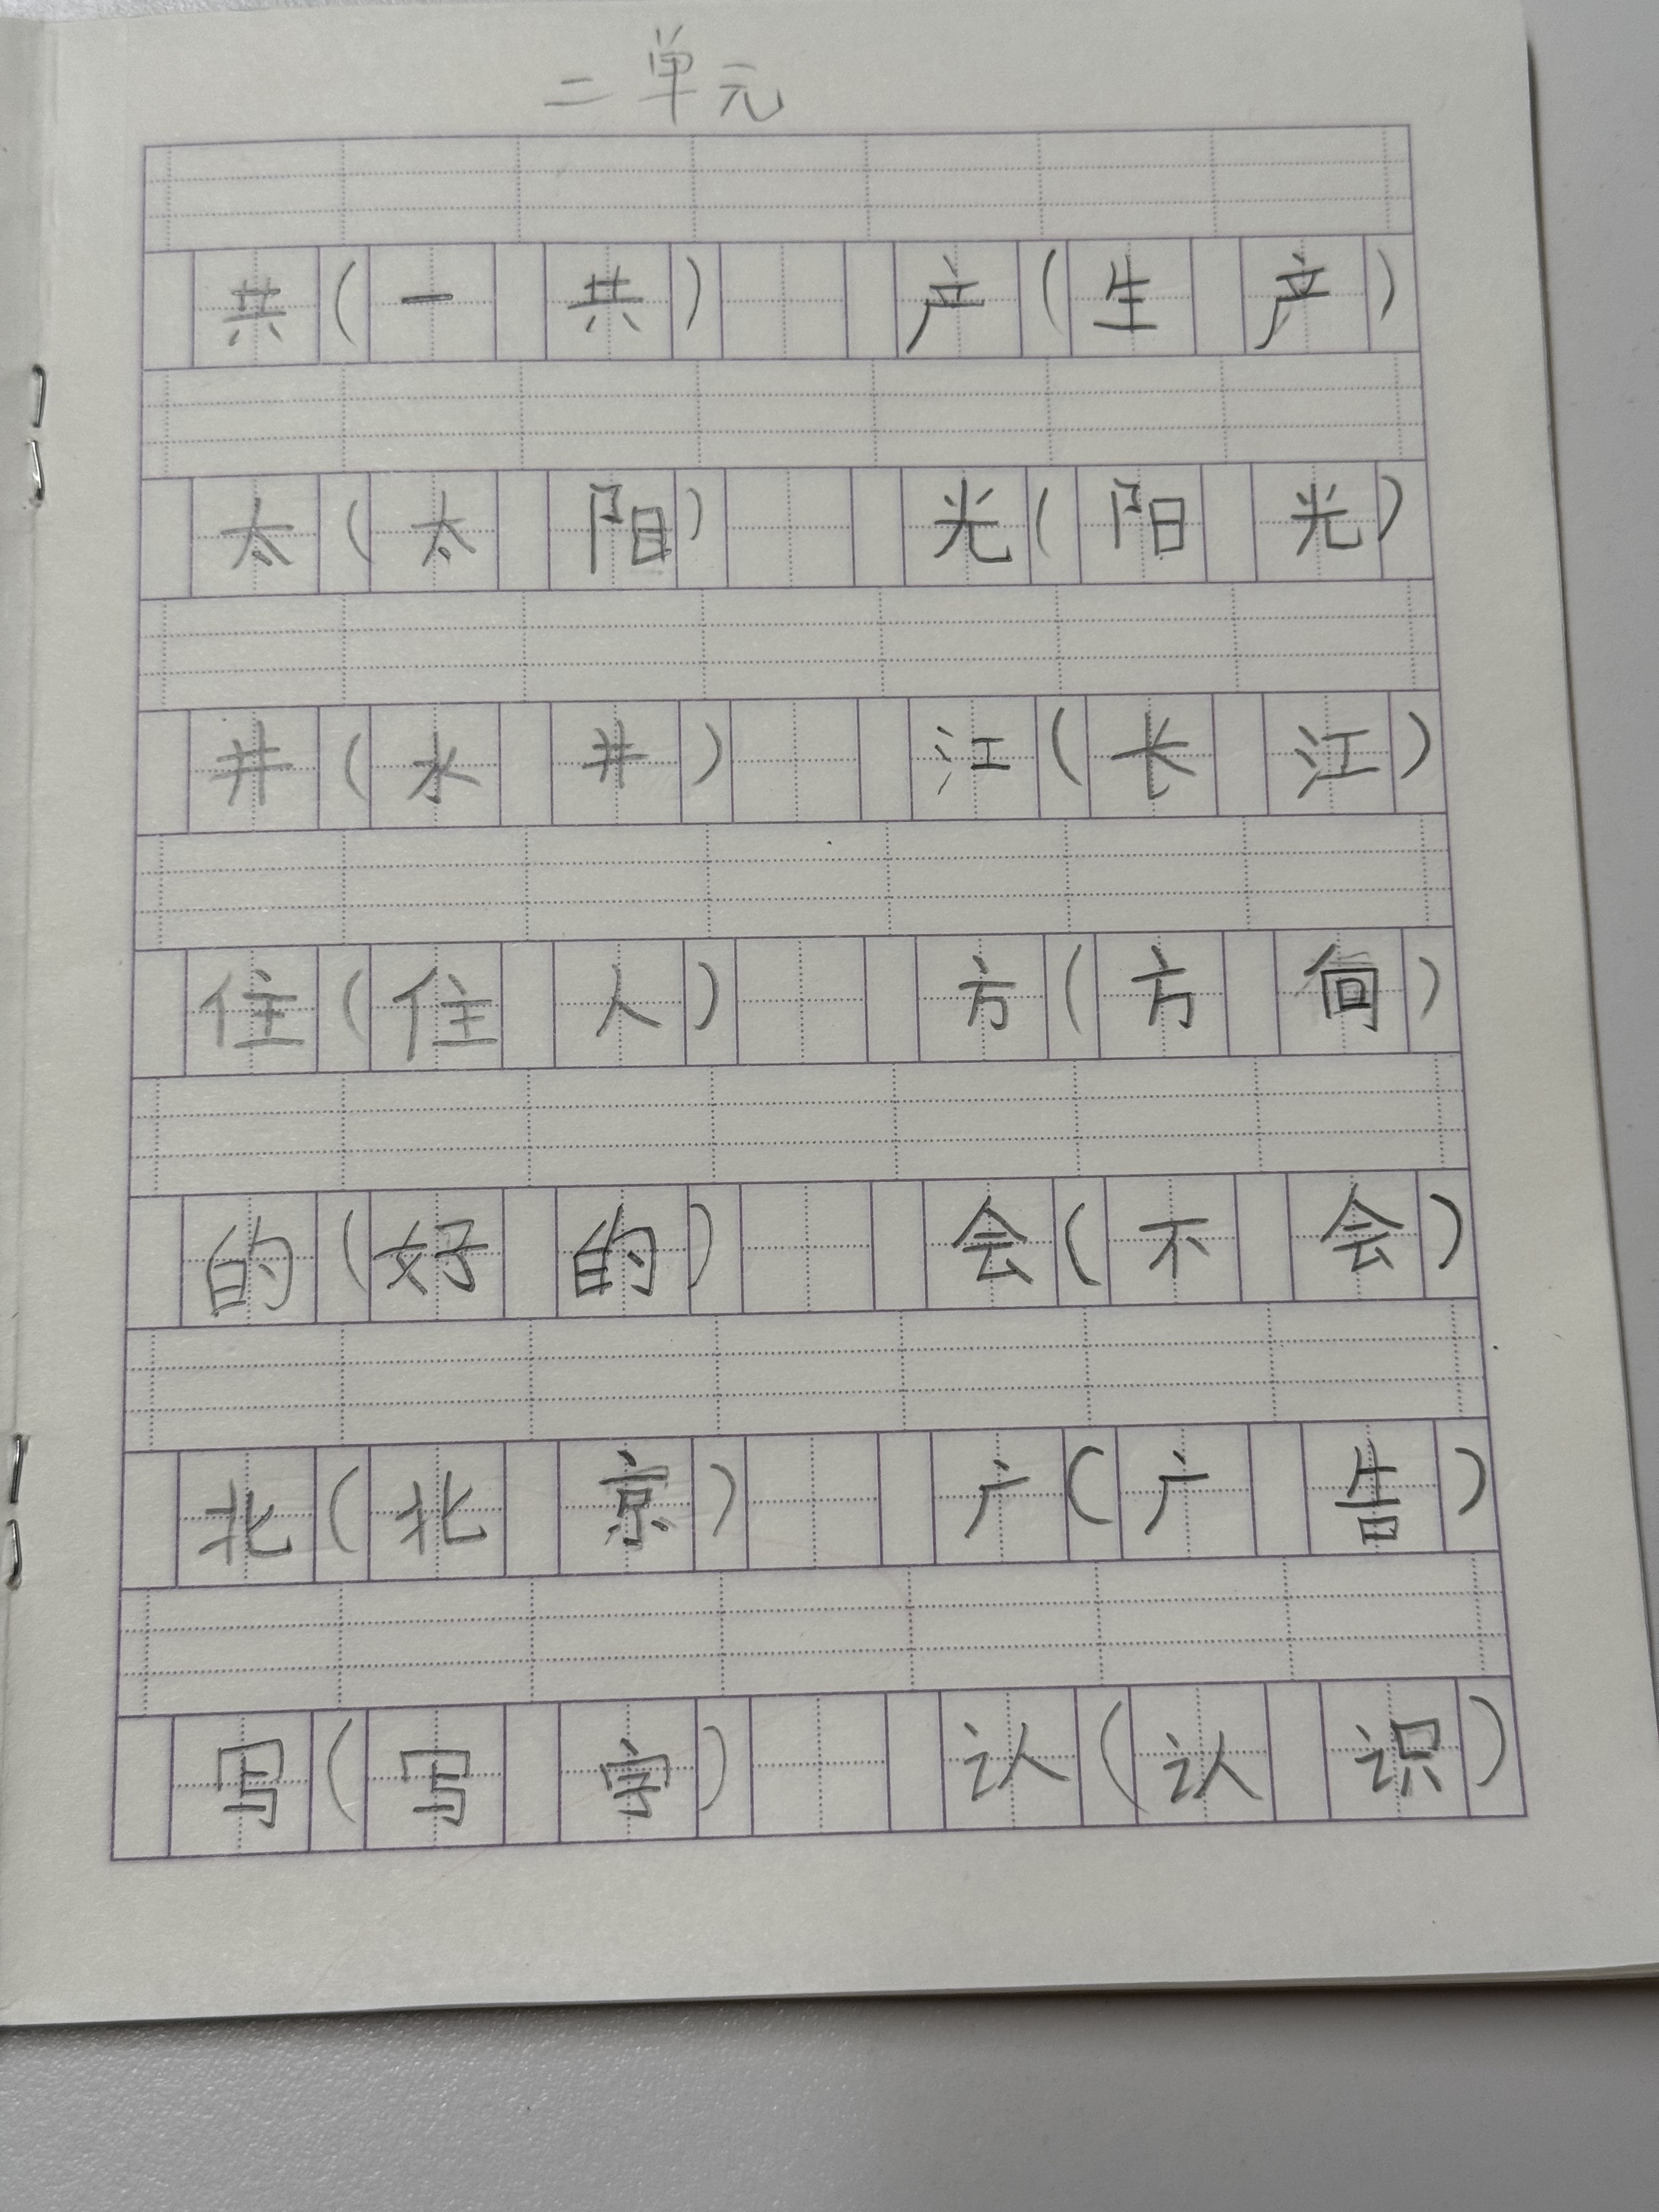 二单元
共（一共） 产（生产）
太（太阳） 光（阳光）
井（水井） 江（长江）
住（住人） 方（方向）
的（好的） 会（不会）
北（北京） 广（广告）
写（写字） 认（认识）